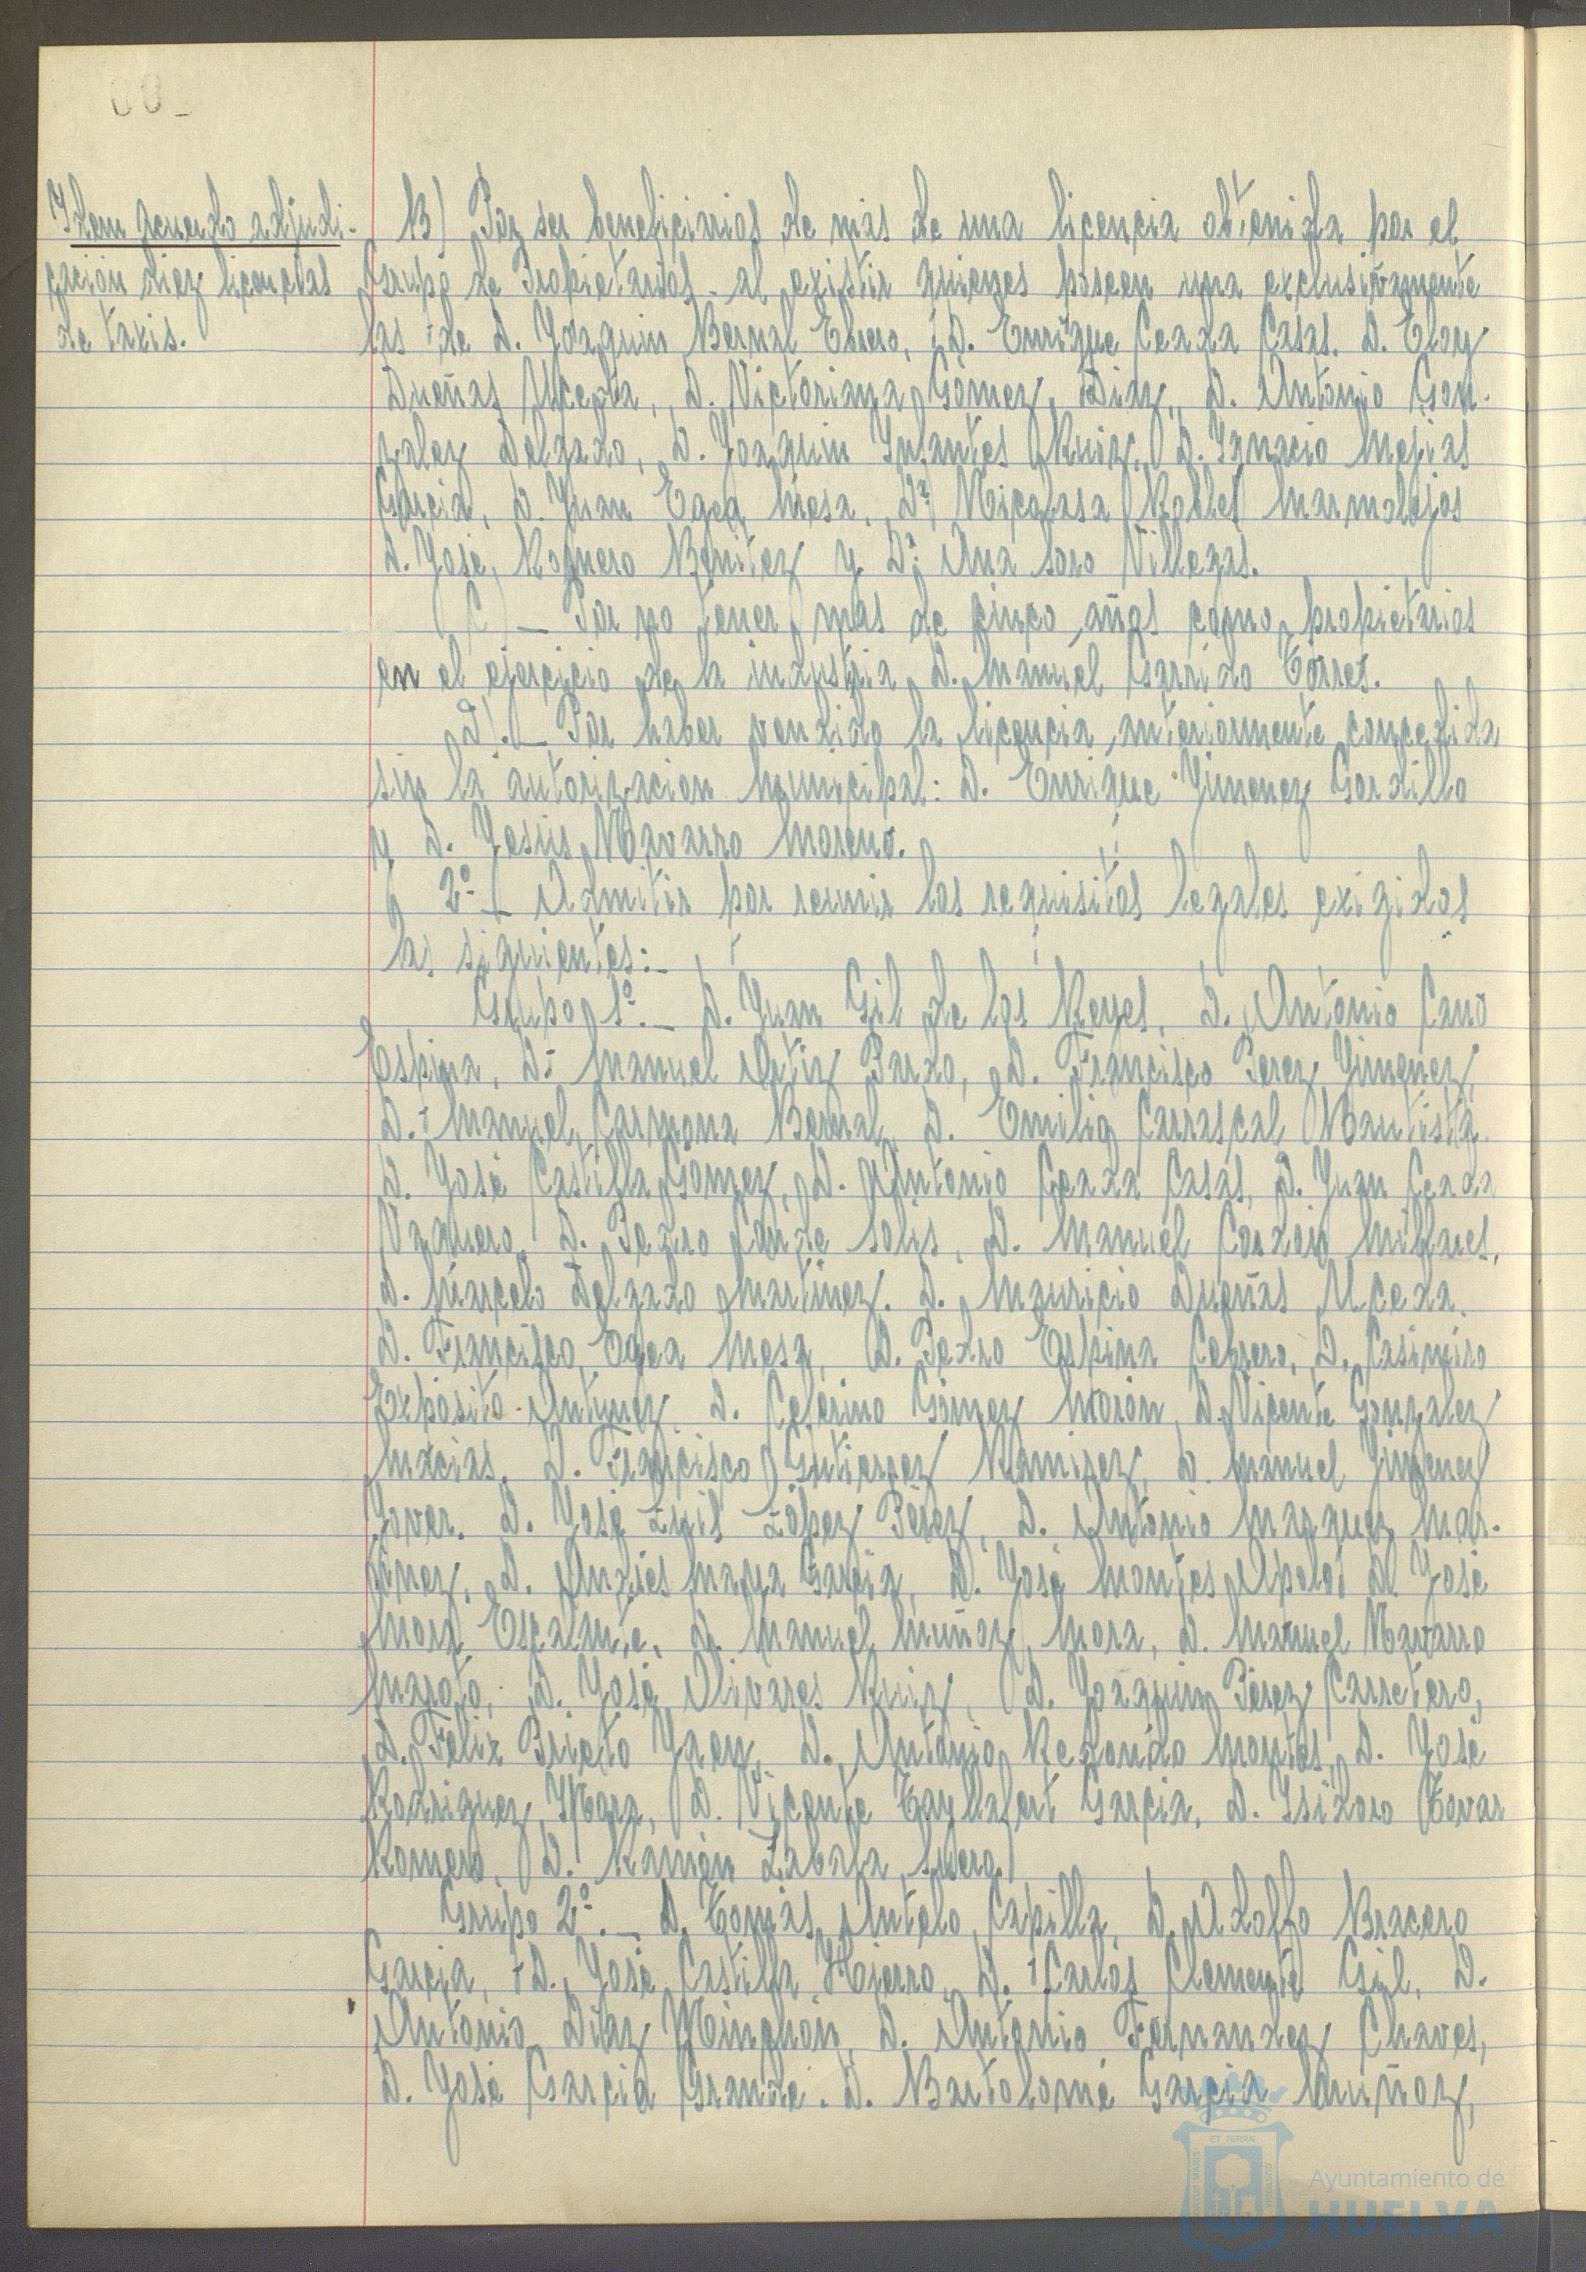 Idem acuerdo adjudi-
cación diez licencias
de taxis.
B) Por ser beneficiarios de mas de una licencia obtenida por el
Grupo de Propietarios - al existir quienes poseen una exclusivamente
las de D. Joaquin Bernal Ebrero, D. Enrique Ceada Casas. D. Eloy
Dueñas Uceda, D. Victoriana Gómez Diaz, D. Antonio Gon-
zalez Delgado, D. Joaquin Infantes Ruiz, D. Ignacio Mejias
Garcia, D. Juan Egea Mesa, Dª Nicolasa Robles Marmolejos
D. José Roquero Benitez y Dª Ana Soro Villegas.
C) – Por no tener mas de cinco años como propietarios
en el ejercicio de la industria D. Manuel Garrido Torres.
D).– Por haber vendido la licencia anteriormente concedida
sin la autorizacion Municipal: D. Enrique Jimenez Gordillo
y D. Jesús Navarro Moreno.
2º – Admitir por reunir los requisitos legales exigidos
las siguientes:–
Grupo 1º.– D. Juan Gil de los Reyes, D. Antonio Cano
Espina, D. Manuel Ortiz Pardo, D. Francisco Perez Jimenez,
D. Manuel Carmona Bernal, D. Emilio Carrascal Bautista
D. José Castilla Gomez, D. Antonio Ceada Casas, D. Juan Ceada
Vaquero, D. Pedro Conde Solis, D. Manuel Cordon
D. Marcelo Delgado Martinez. D. Mauricio Dueñas Uceda.
D. Francisco Egea Mesa, D. Pedro Espina Cebrero, D. Casimiro
Expósito Antunez, D. Ceferino Gómez Morón, D. Vicente Gonzalez
Macias, D. Francisco Gutierrez Ramirez, D. Manuel Jimenez
Jover. D. José Luis López Pérez, D. Antonio Marquez Mar-
tinez, D. Andrés Maya Garcia, D. José Montes D. José
Mora Escalante, D. Manuel Muñoz Mora, D. Manuel Navarro
Maroto, D. José Olivares Ruiz, D. Joaquin Pérez Carretero,
D. Felix Prieto Jaen, D. Antonio Redondo Montes, D. José
Rodriguez Mora, D. Vicente Tayllafert Garcia, D. Isidoro Tovar
Romero, D. Ramón Zabala
Grupo 2º.– D. Tomás Antelo Capilla, D. Adolfo Bracero
Garcia, D. José Castilla Hierro, D. Carlos Clemente Gil, D.
Antonio Diaz Minchón, D. Antonio Fernandez Chaves,
D. José Garcia Grande. D. Bartolomé Garcia Muñoz,
Ayuntamiento de
HUELVA